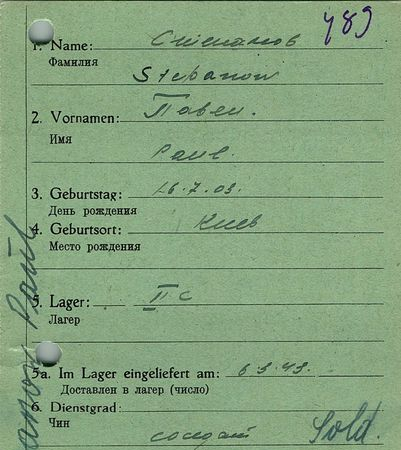 489
1. Name: Степанов
Фамилия
Stepanow
2. Vornamen: Павел.
Имя
Paul.
3. Geburtstag: 16.7.03.
День рождения
4. Geburtsort: Киев
Место рождения
5. Lager: II C
Лагерь
5a. Im Lager eingeliefert am: 6 3.43.
Доставлен в лагерь (число)
6. Dienstgrad:
Чин
солдат Sold.
Paul